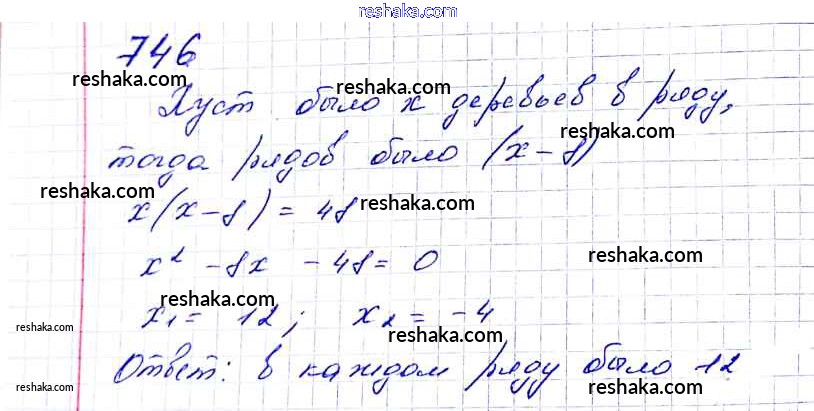 reshaka.com
746
reshaka.com
reshaka.com
Пуст было x деревьев в ряду,
reshaka.com
тогда рядов было (x-8)
reshaka.com
reshaka.com
x(x-8) = 48
x² - 8x - 48 = 0
reshaka.com
reshaka.com
x₁ = 12; x₂ = -4
reshaka.com
reshaka.com
Ответ: в каждом ряду было 12
reshaka.com
reshaka.com
reshaka.com